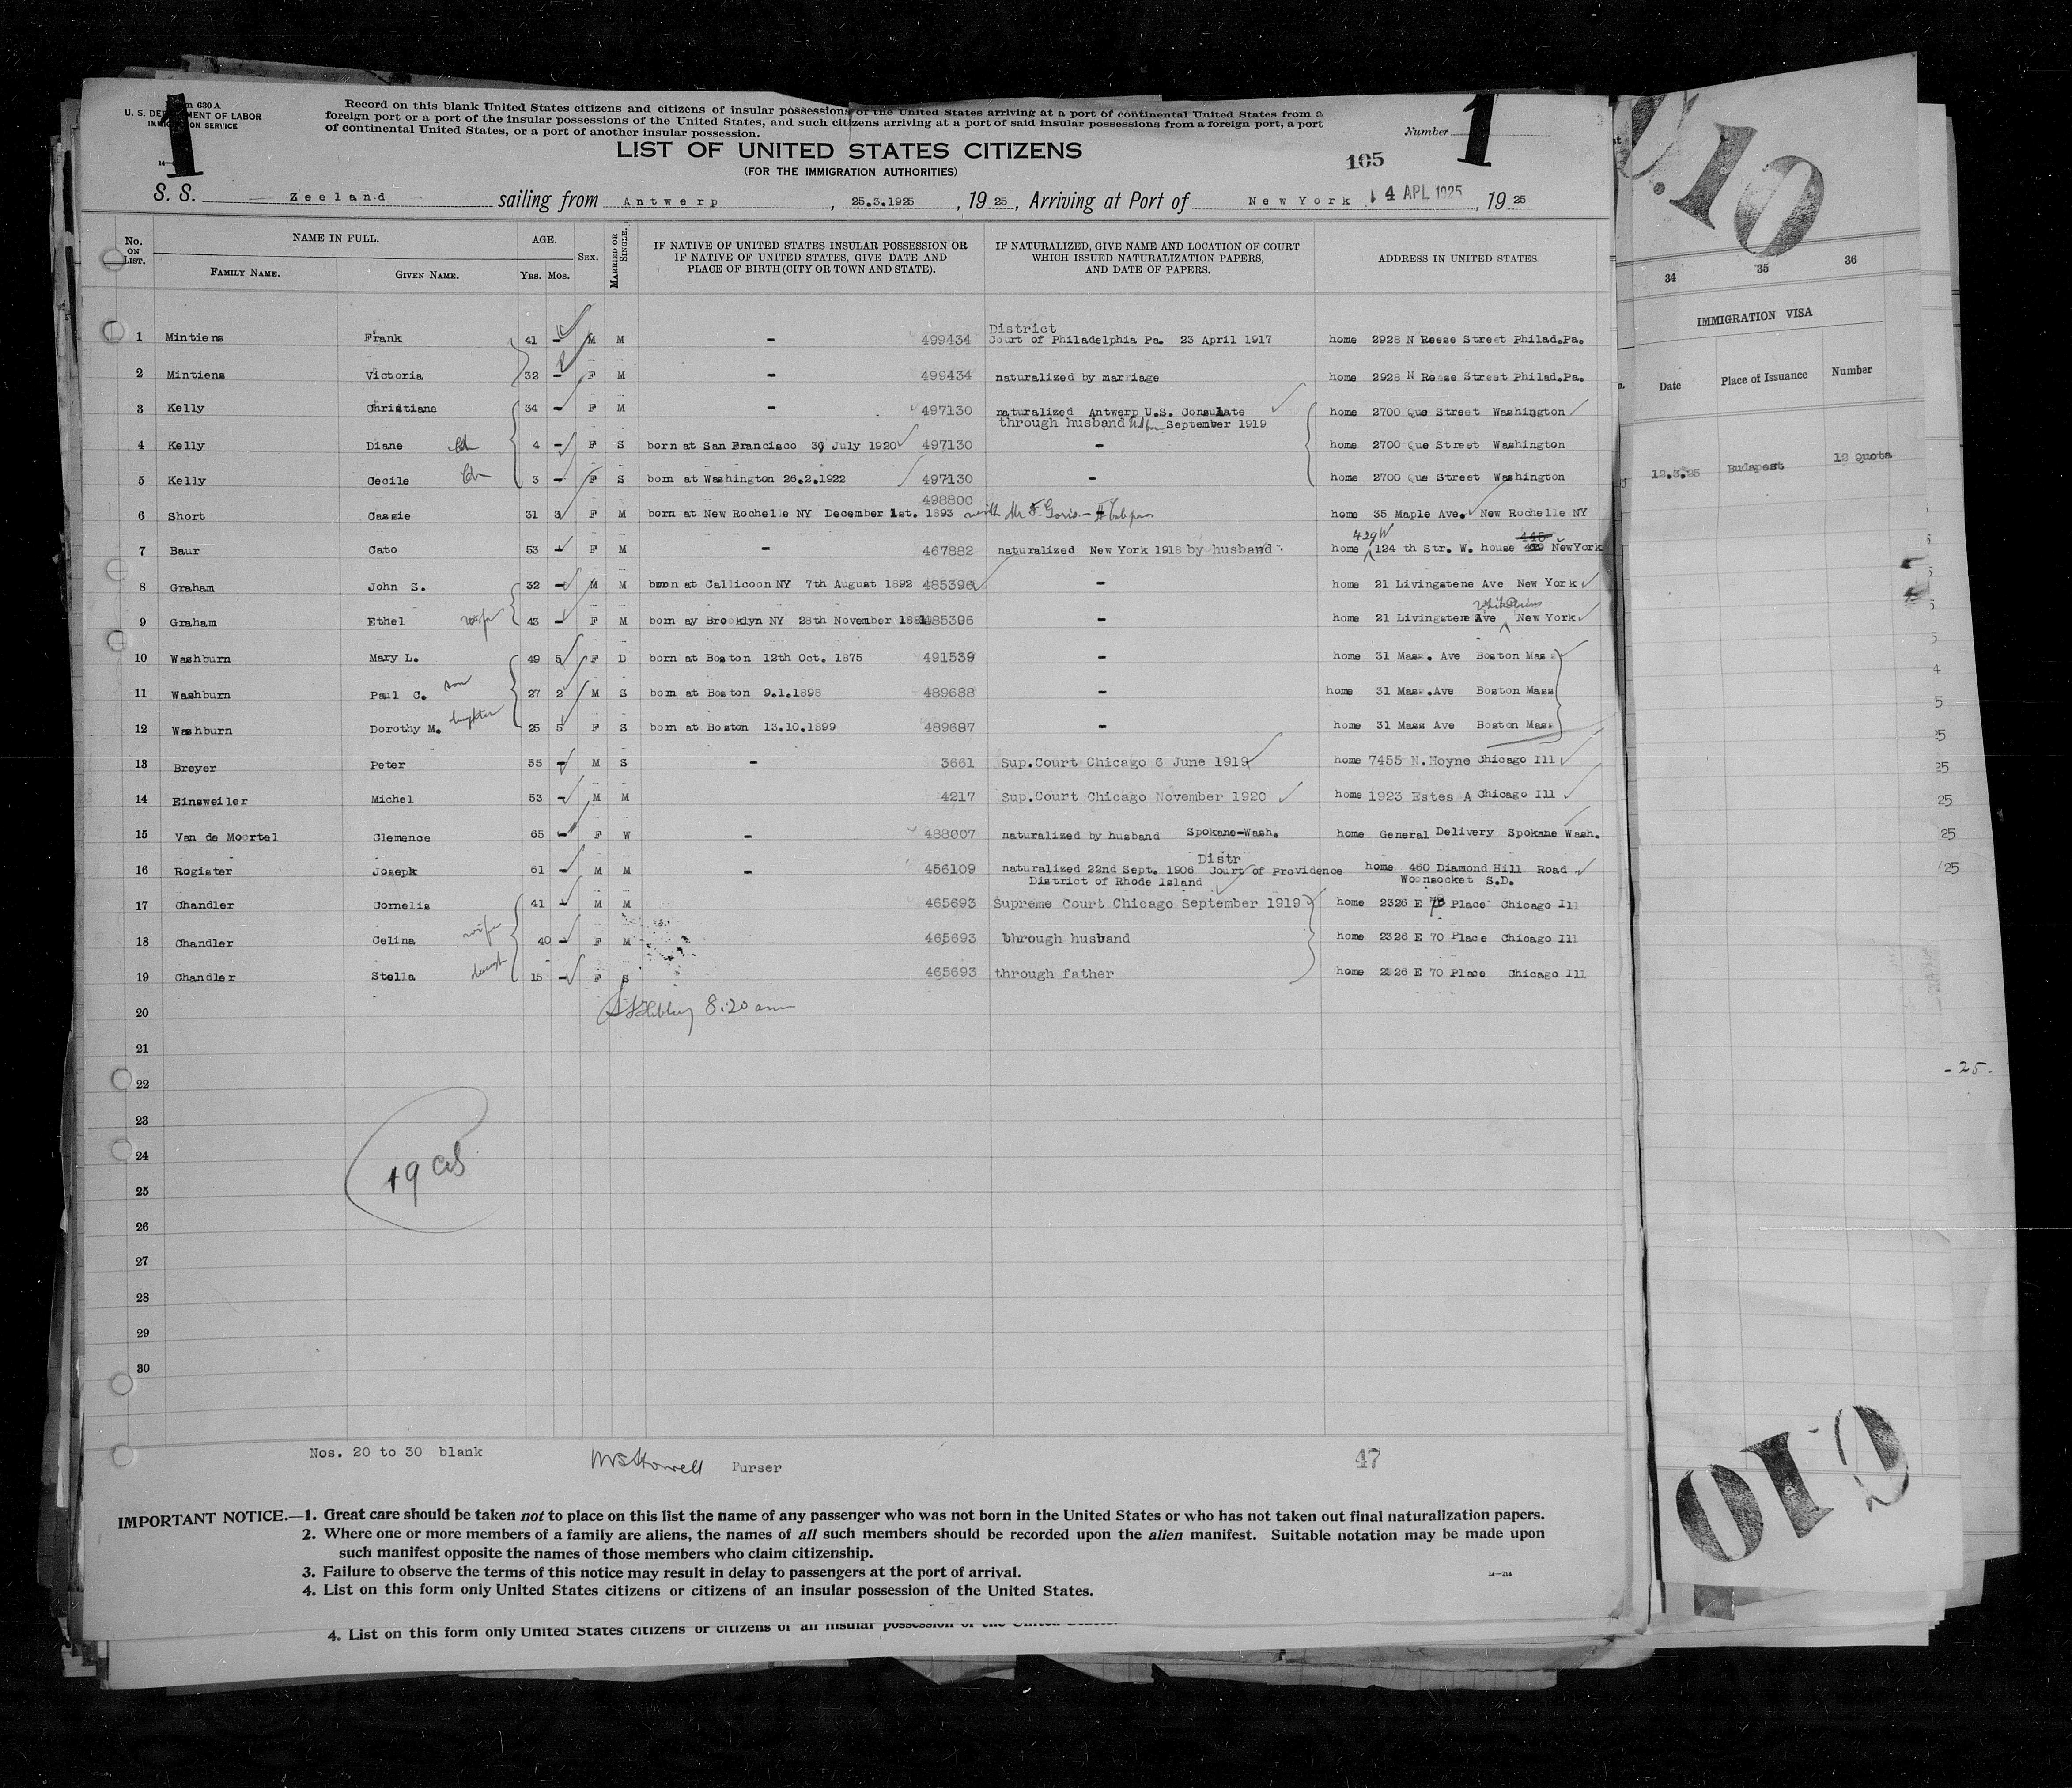 Form 630 A
U. S. DEPARTMENT OF LABOR
IMMIGRATION SERVICE
1
Record on this blank United States citizens and citizens of insular possessions of the United States arriving at a port of continental United States from a
foreign port or a port of the insular possessions of the United States, and such citizens arriving at a port of said insular possessions from a foreign port, a port
of continental United States, or a port of another insular possession.
Number 1
LIST OF UNITED STATES CITIZENS
(FOR THE IMMIGRATION AUTHORITIES)
105
S. S. Zeeland sailing from Antwerp, 25.3.1925, 1925, Arriving at Port of New York 4 APL 1925, 1925
No. ON LIST. NAME IN FULL. FAMILY NAME. GIVEN NAME. AGE. YRS. MOS. SEX. MARRIED OR SINGLE. IF NATIVE OF UNITED STATES INSULAR POSSESSION OR IF NATIVE OF UNITED STATES, GIVE DATE AND PLACE OF BIRTH (CITY OR TOWN AND STATE). IF NATURALIZED, GIVE NAME AND LOCATION OF COURT WHICH ISSUED NATURALIZATION PAPERS, AND DATE OF PAPERS. ADDRESS IN UNITED STATES.
1 Mintiens Frank 41 - M M - 499434 District Court of Philadelphia Pa. 23 April 1917 home 2928 N Reese Street Philad.Pa.
2 Mintiens Victoria 32 - F M - 499434 naturalized by marriage home 2928 N Reese Street Philad.Pa.
3 Kelly Christiane 34 - F M - 497130 naturalized Antwerp U.S. Consulate through husband September 1919 home 2700 Que Street Washington
4 Kelly Diane 4 - F S born at San Francisco 30 July 1920 497130 - home 2700 Que Street Washington
5 Kelly Cecile 3 - F S born at Washington 26.2.1922 497130 - home 2700 Que Street Washington
498800
6 Short Cassie 31 3 F M born at New Rochelle NY December 1st. 1893 with Mr F. home 35 Maple Ave. New Rochelle NY
7 Baur Cato 53 - F M - 467882 naturalized New York 1918 by husband home 429 W 124 th Str. W. house 429 NewYork
8 Graham John S. 32 - M M born at Callicoon NY 7th August 1892 485396 - home 21 Livingstene Ave New York
9 Graham Ethel wife 43 - F M born ay Brooklyn NY 28th November 1881 485396 - home 21 Livingstene Ave White Plains New York
10 Washburn Mary L. 49 5 F D born at Boston 12th Oct. 1875 491539 - home 31 Mass. Ave Boston Mass
11 Washburn Paul C. son 27 2 M S born at Boston 9.1.1898 489688 - home 31 Mass.Ave Boston Mass
12 Washburn Dorothy M. daughter 25 5 F S born at Boston 13.10.1899 489687 - home 31 Mass Ave Boston Mass
13 Breyer Peter 55 - M S - 3661 Sup.Court Chicago 6 June 1919 home 7455 N.Hoyne Chicago Ill
14 Einsweiler Michel 53 - M M 4217 Sup.Court Chicago November 1920 home 1923 Estes A Chicago Ill
15 Van de Moortel Clemence 65 - F W - 488007 naturalized by husband Spokane-Wash. home General Delivery Spokane Wash.
16 Rogister Joseph 61 - M M - 456109 naturalized 22nd Sept. 1906 Distr Court of Providence District of Rhode Island home 460 Diamond Hill Road Woonsocket S.D.
17 Chandler Cornelis 41 - M M 465693 Supreme Court Chicago September 1919 home 2326 E 70 Place Chicago Ill
18 Chandler Celina wife 40 - F M 465693 through husband home 2326 E 70 Place Chicago Ill
19 Chandler Stella daugh 15 - F S 465693 through father home 2326 E 70 Place Chicago Ill
20 8:20 am
21
22
23
24
19
25
26
27
28
29
30
Nos. 20 to 30 blank Howell Purser 47
IMPORTANT NOTICE.—1. Great care should be taken not to place on this list the name of any passenger who was not born in the United States or who has not taken out final naturalization papers.
2. Where one or more members of a family are aliens, the names of all such members should be recorded upon the alien manifest. Suitable notation may be made upon
such manifest opposite the names of those members who claim citizenship.
3. Failure to observe the terms of this notice may result in delay to passengers at the port of arrival.
4. List on this form only United States citizens or citizens of an insular possession of the United States.
14—214
4. List on this form only United States citizens or citizens of an insular possession of the United States.
34 35 36
IMMIGRATION VISA
Date Place of Issuance Number
12.3.25 Budapest 12 Quota
- 25.